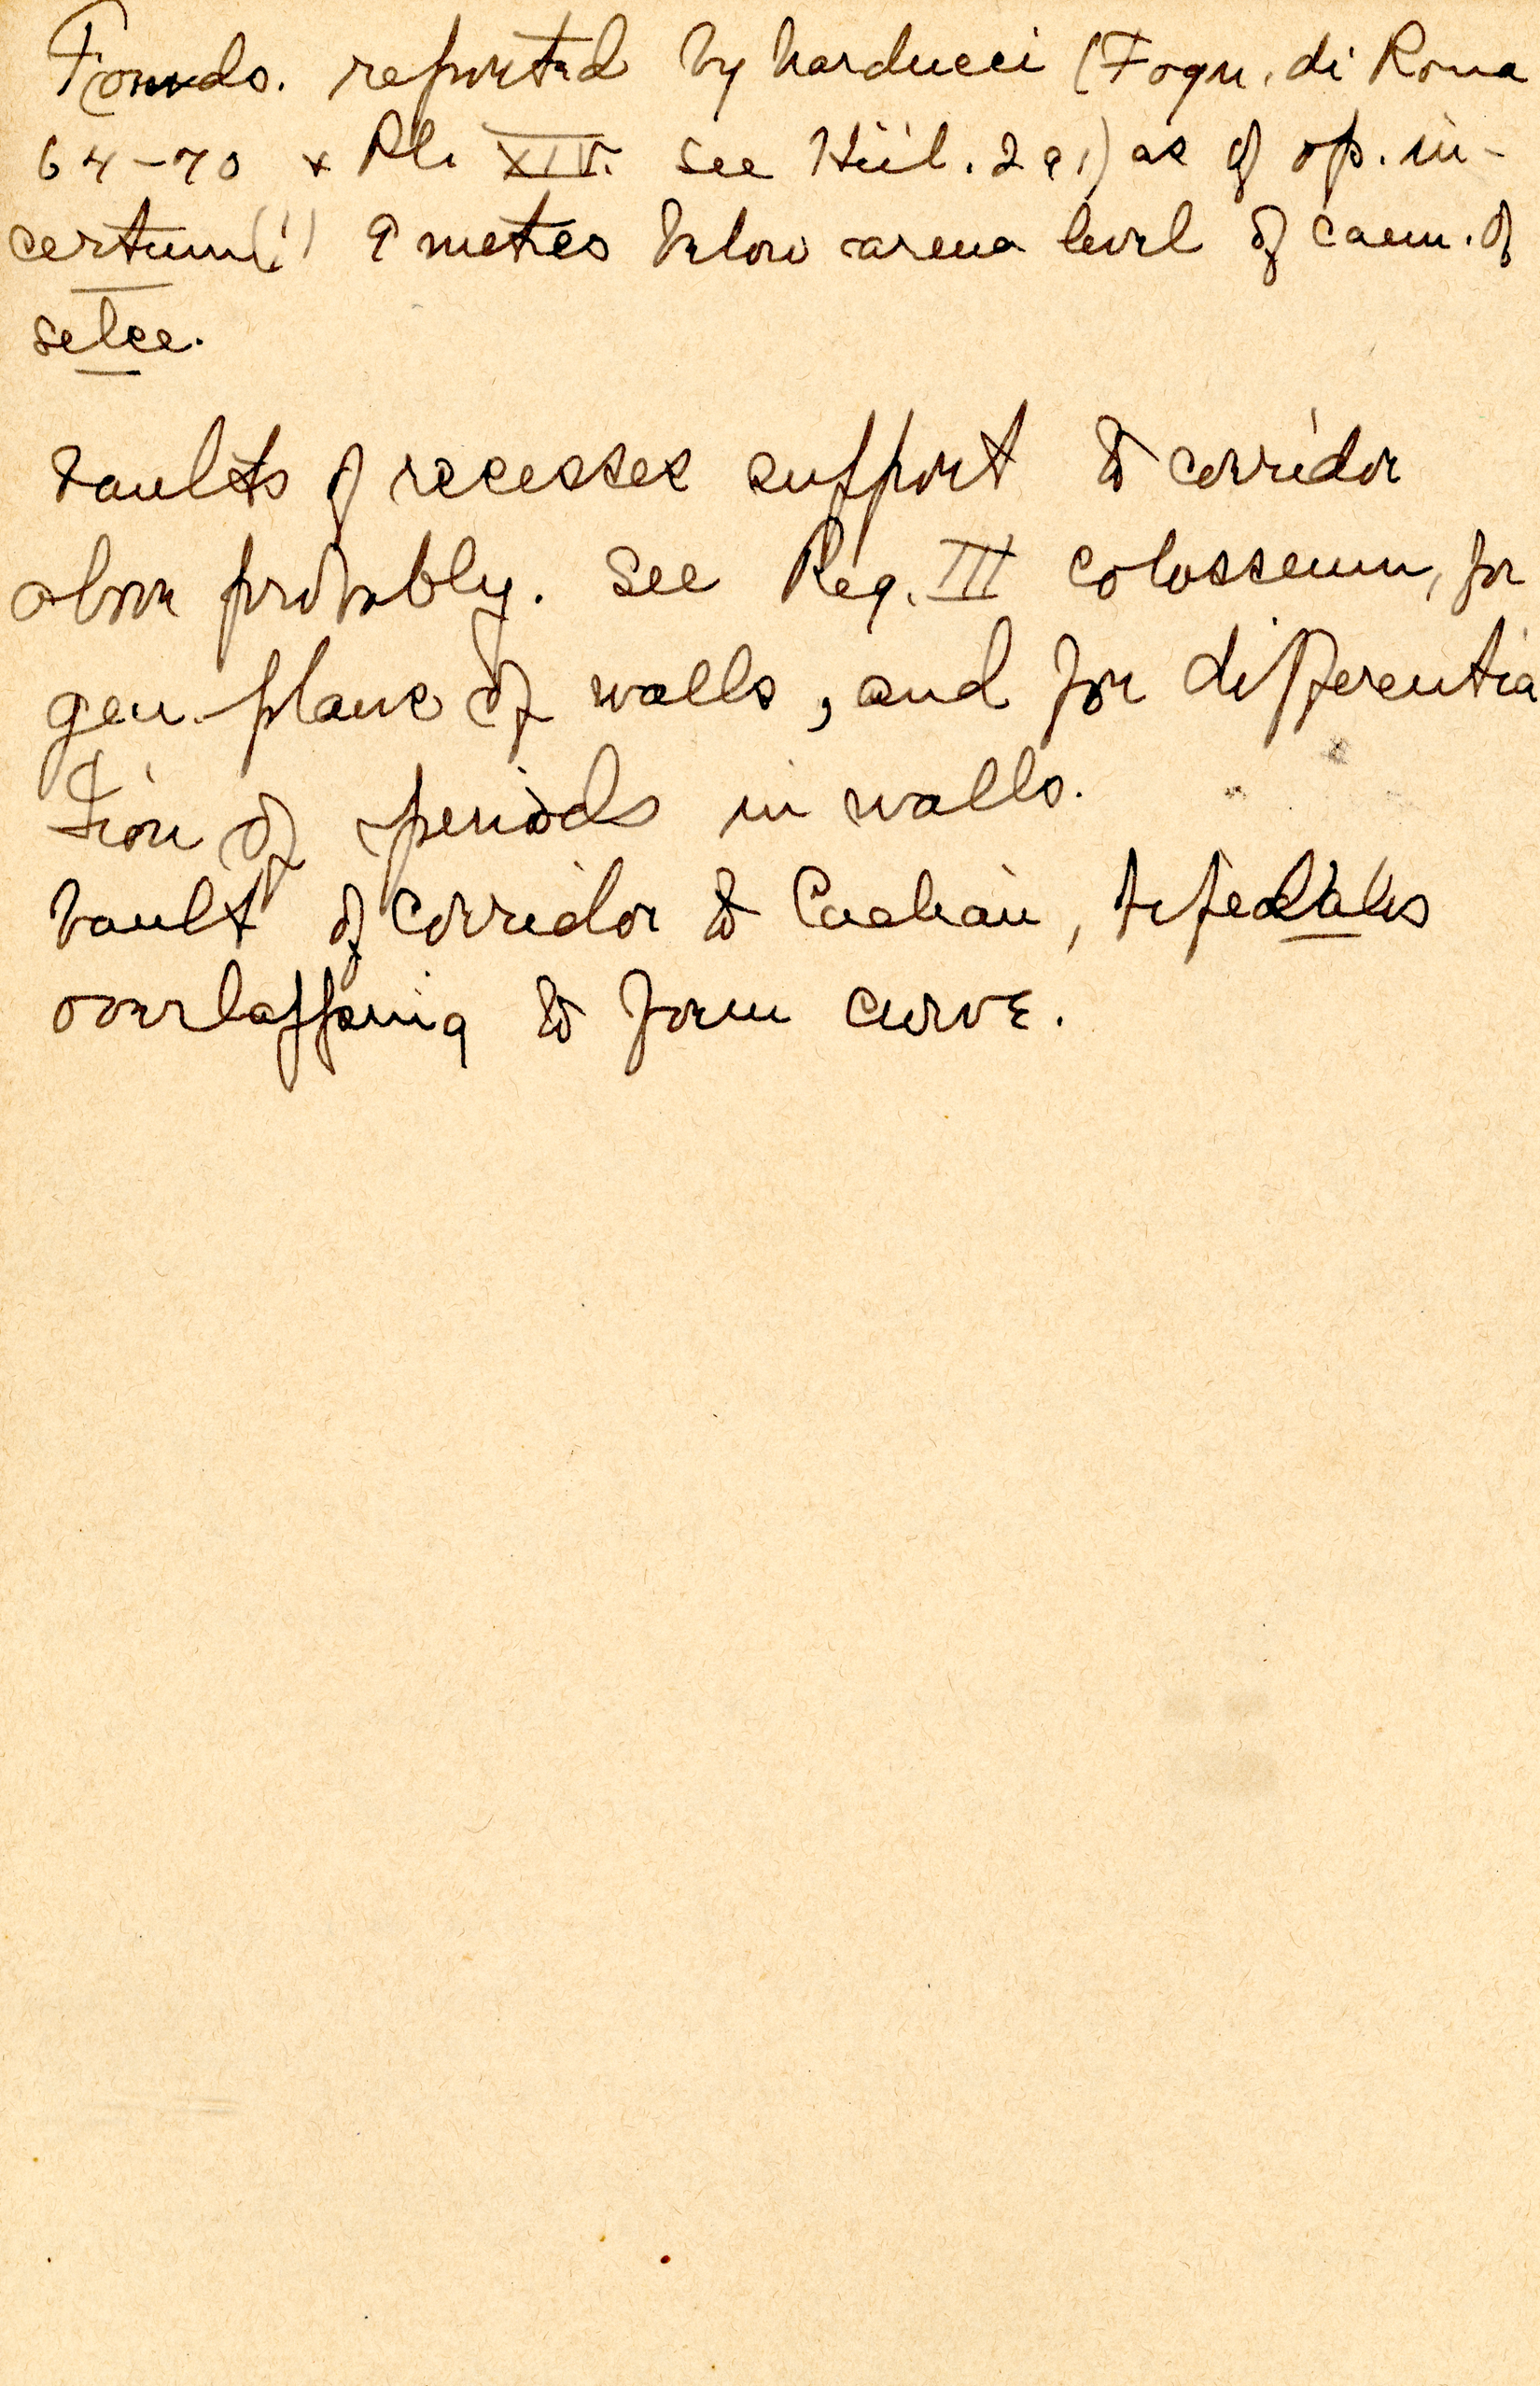 Founds. reported by Narducci (Fogn. di Roma
64-70 + Pl. XIV. see Hül. 291) as of op. in-
certum(!) 9 metres below arena level of caem. of
selce.
Vaults of recesses support to corridor
above probably. See Reg. III Colosseum, for
gen. plans of walls, and for differentia
tion of periods in walls.
Vault of corridor to Caelian,
overlapping to form curve.